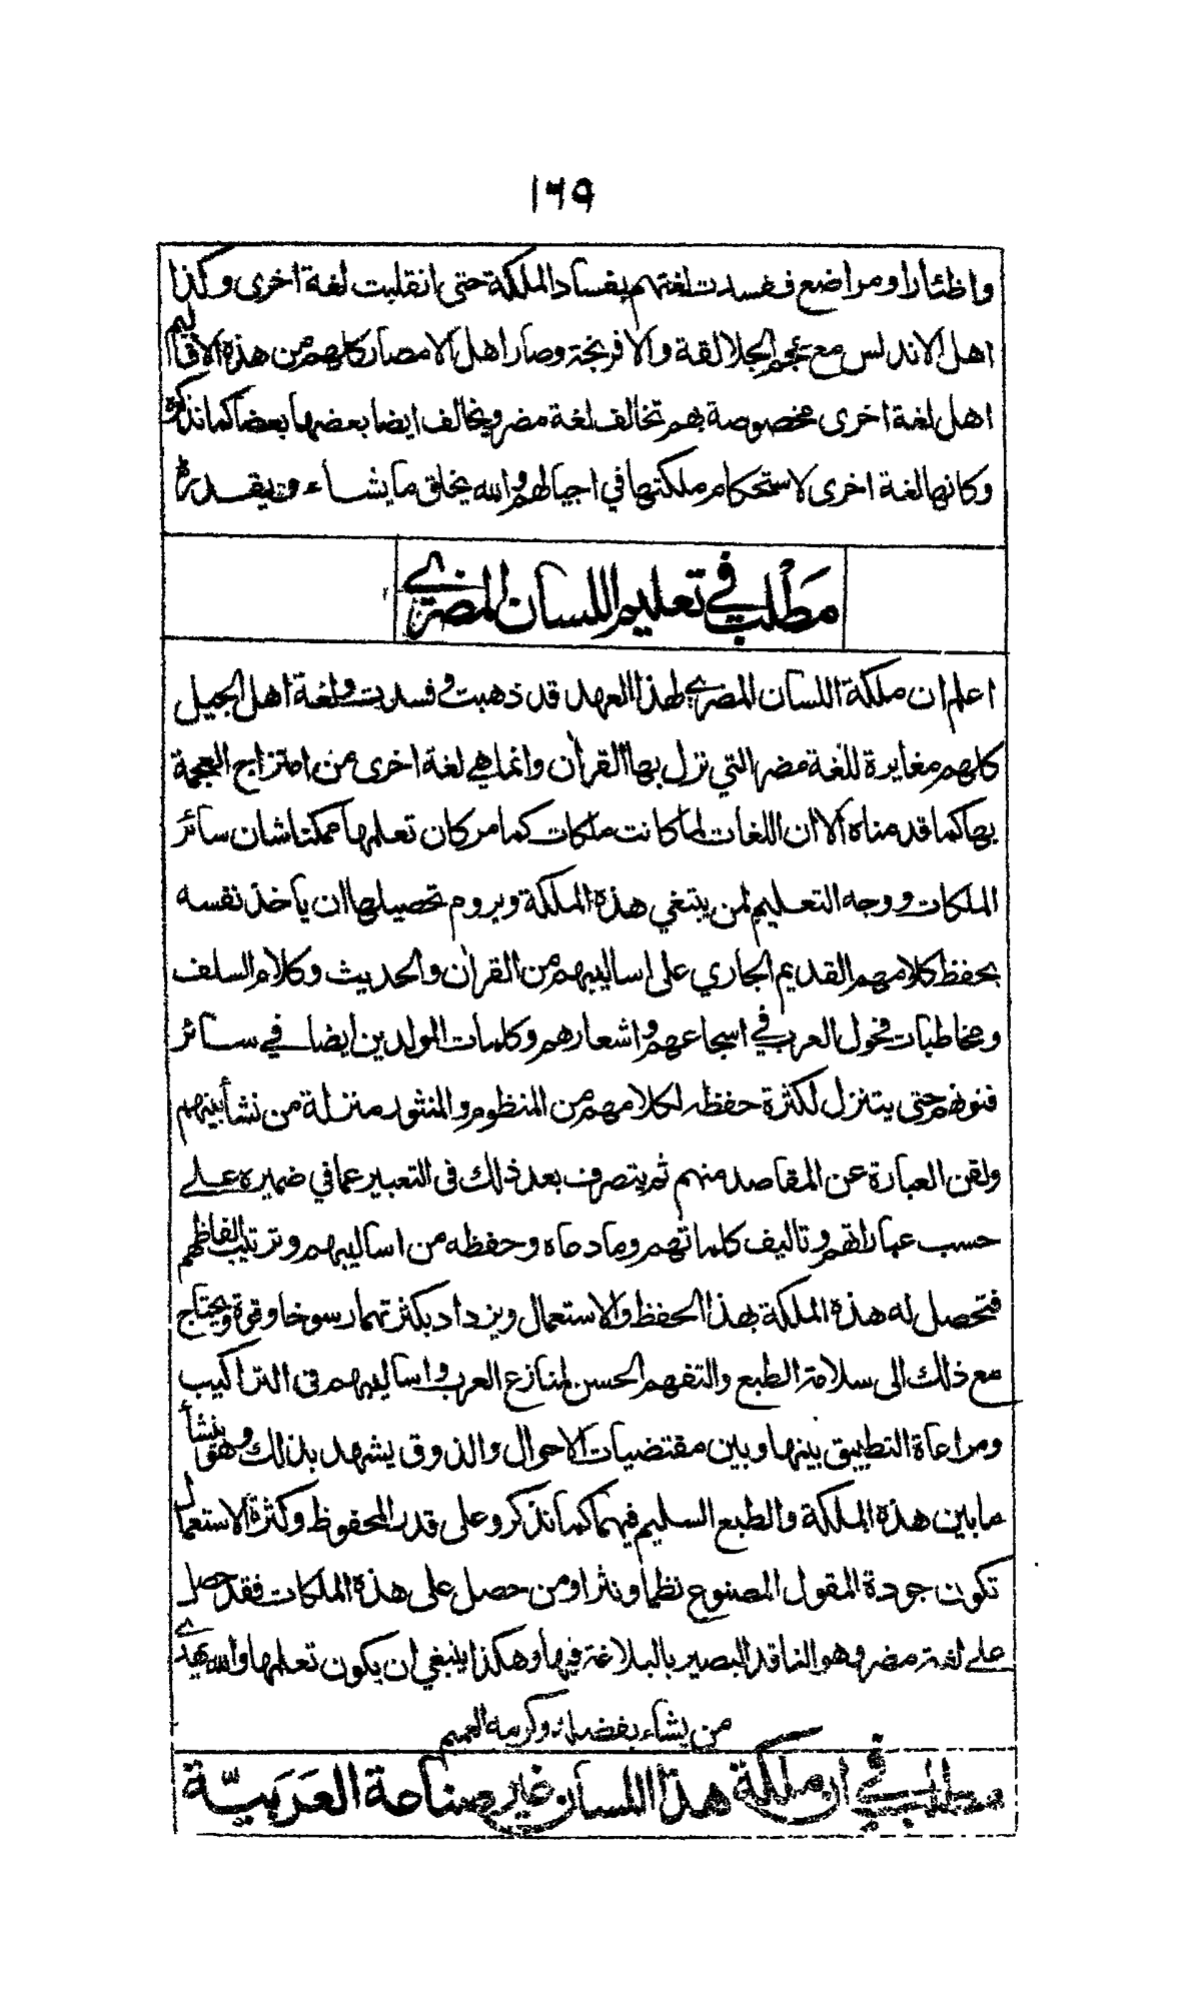 ١٦٩
واظئارا ومراضع ففسدت لغتهم بفساد الملكة حتى انقلبت لغة اخرى وكذا
اهل الاندلس مع عجم الجلالقة والافرنجة وصار اهل الامصار كلهم من هذه الاقاليم
اهل لغة اخرى مخصوصة بهم تخالف لغة مضر ويخالف ايضا بعضها بعضا كما نذكره
وكانها لغة اخرى لاستحكام ملكتها في اجيالهم والله يخلق ما يشاء ويقدر
مطلب في تعليم اللسان المضري
اعلم ان ملكة اللسان المضري لهذا العهد قد ذهبت وفسدت ولغة اهل الجيل
كلهم مغايرة للغة مضر التي نزل بها القرأن وانما هي لغة اخرى من امتزاج العجمة
بها كما قدمناه الا ان اللغات لما كانت ملكات كما مر كان تعلمها ممكنا شان سائر
الملكات ووجه التعليم لمن يبتغي هذه الملكة ويروم تحصيلها ان ياخذ نفسه
بحفظ كلامهم القديم الجاري على اساليبهم من القرأن والحديث وكلام السلف
ومخاطبات فحول العرب في اسجاعهم واشعارهم وكلمات المولدين ايضا في سائر
فنونهم حتى يتنزل لكثرة حفظه لكلامهم من المنظوم والمنثور منزلة من نشأ بينهم
ولقن العبارة عن المقاصد منهم ثم يتصرف بعد ذلك في التعبير عما في ضميره على
حسب عباراتهم وتاليف كلماتهم وما دعاه وحفظه من اساليبهم وترتيب الفاظهم
فتحصل له هذه الملكة بهذا الحفظ والاستعمال ويزداد بكثرتهما رسوخا وقوة ويحتاج
مع ذلك الى سلامة الطبع والتفهم الحسن لمنازع العرب واساليبهم في التراكيب
ومراعاة التطبيق بينها وبين مقتضيات الاحوال والذوق يشهد بذلك وهو ينشأ
ما بين هذه الملكة والطبع السليم فيهما كما نذكر وعلى قدر المحفوظ وكثرة الاستعمال
تكون جودة المقول المصنوع نظما ونثرا ومن حصل على هذه الملكات فقد حصل
على لغة مضر وهو الناقد البصير بالبلاغة فيها وهكذا ينبغي ان يكون تعلمها والله يهدي
من يشاء بفضله وكرمه العميم
مطلب في ان ملكة هذا اللسان غير صناعة العَرَبيّة